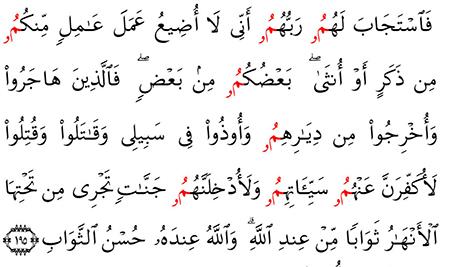 فَٱسۡتَجَابَ لَهُمُۥ رَبُّهُمُۥٓ أَنِّى لَآ أُضِيعُ عَمَلَ عَٰمِلٖ مِّنكُمُۥ
مِن ذَكَرٍ أَوۡ أُنثَىٰۖ بَعۡضُكُمُۥ مِنۢ بَعۡضٖۖ فَٱلَّذِينَ هَاجَرُواْ
وَأُخۡرِجُواْ مِن دِيَٰرِهِمُۥ وَأُوذُواْ فِى سَبِيلِى وَقَٰتَلُواْ وَقُتِلُواْ
لَأُكَفِّرَنَّ عَنۡهُمُۥ سَيِّـَٔاتِهِمُۥ وَلَأُدۡخِلَنَّهُمُۥ جَنَّٰتٖ تَجۡرِى مِن تَحۡتِهَا
ٱلۡأَنۡهَٰرُ ثَوَابٗا مِّنۡ عِندِ ٱللَّهِۗ وَٱللَّهُ عِندَهُۥ حُسۡنُ ٱلثَّوَابِ ١٩٥